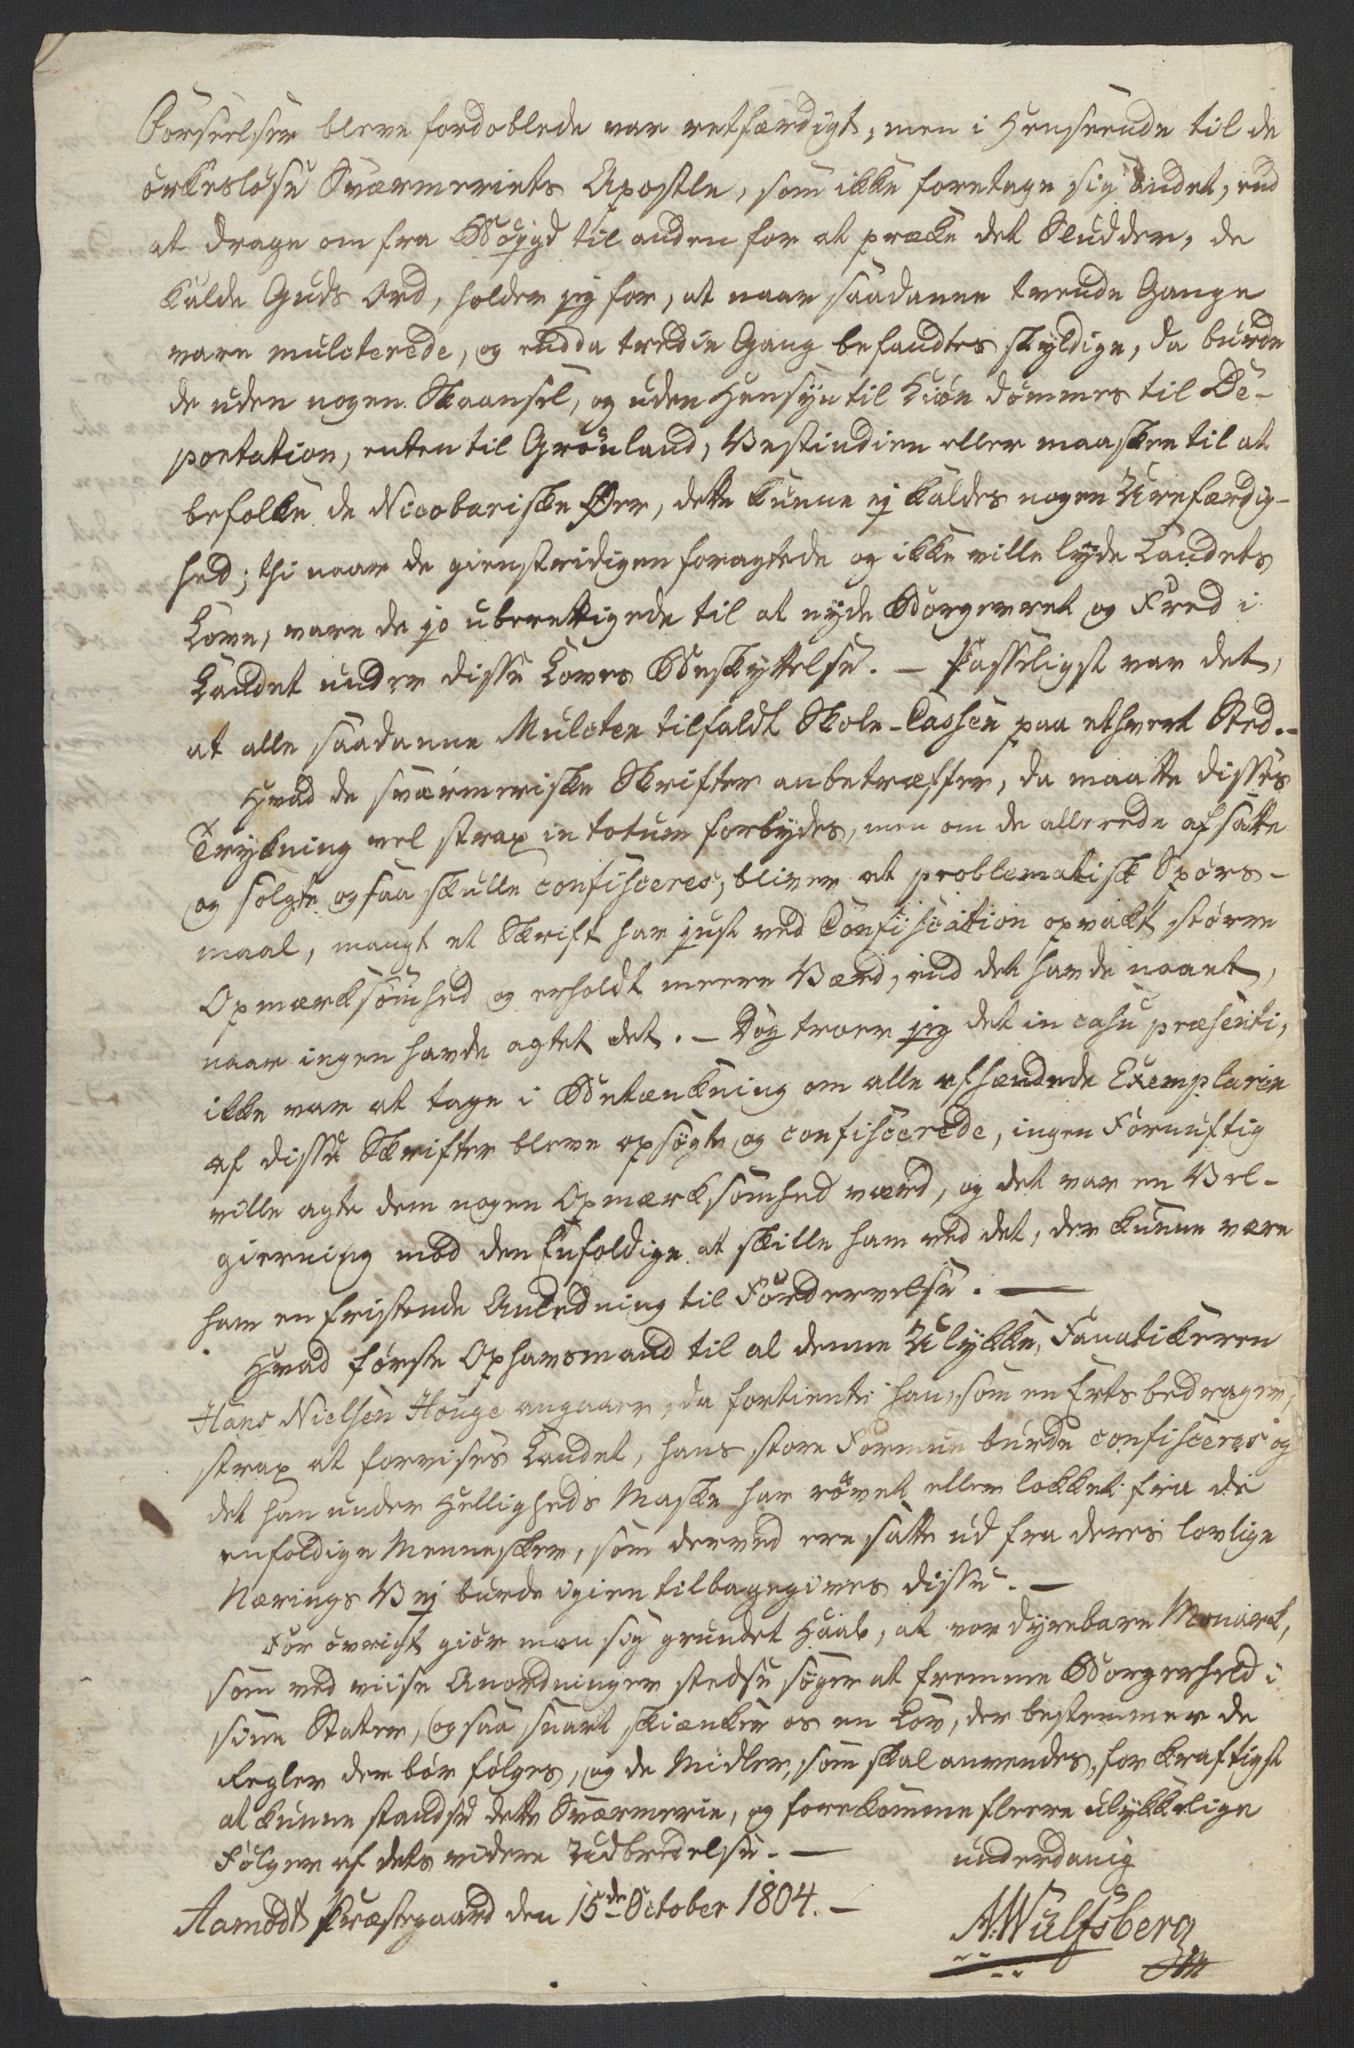 Forseelser bleve fordoblede var retfærdigt, men i Henseende til de
örkeslöse Sværmeriets Apostle, som ikke foretage sig andet, end
at drage om fra Bÿgd til anden for at præke det Sludder, de
kalde Guds Ord, holder jeg for, at naar saadanne trende Gange
vare mulcterede, og endda tredie Gang befandtes skyldige, da burde
de uden nogen Skaansel, og uden Hensÿn til Kiön dömmes til De-
portation, enten til Grönland, Vestindien eller maaskee til at
befolke de Nicobariske Øer, dette kunne ej kaldes nogen Uretfærdig-
hed; thi naar de gienstridigen foragtede og ikke ville lÿde Landets
Love, vare de jo uberettigede til at nÿde Borgerret og Fred i
Landet under disse Loves Beskyttelse. — Passeligst var det,
at alle saadanne Mulcter tilfaldt Skole-Cassen paa ethvert Sted. –
Hvad de sværmeriske Skrifter anbetræffer, da maatte disses
Trykning vel strax in totum forbydes, men om de allerede afsatte
og solgte ogsaa skulle confisceres, bliver et problematisk Spörs-
maal, mangt et Skrift har just ved Confiscation opvakt större
Opmærksomhed og erholdt meere Værd, end det havde naaet,
naar ingen havde agtet det. — Dog troer jeg det in casu præsenti,
ikke var at tage i Betænkning om alle afhændede Exemplarer
af disse Skrifter bleve opsögte og confiscerede, ingen Fornuftig
ville agte dem nogen Opmærksomhed værd, og det var en Vel-
gierning mod den Enfoldige at skille ham ved det, der kunne være
ham en fristende Anledning til Fordervelse. —
Hvad förste Ophavsmand til al denne Ulykke, Fanatikeren
Hans Nielsen Houge angaaer, da fortiente han, som en Ertsbedrager,
strax at forvises Landet, hans store Formue burde confisceres og
det han under Helligheds Maske har rövet eller lokket fra de
enfoldige Mennesker, som derved ere satte ud fra deres lovlige
Nærings Vej burde igien tilbagegives disse. —
For övrigt giör man sig grundet Haab, at vor dyrebare Monark,
som ved viise Anordninger stedse söger at fremme Borgerheld i
sine Stater, ogsaa snart skiænker os en Lov, der bestemmer de
Regler der bör fölges, og de Midler, som skal anvendes, for kraftigst
at kunne standse dette Sværmerie, og forekomme fleere ulykkelige
Fölger af dets videre Udbredelse. —
underdanig
Aamodt Præstegaard den 15de October 1804. —
A: Wulfsberg